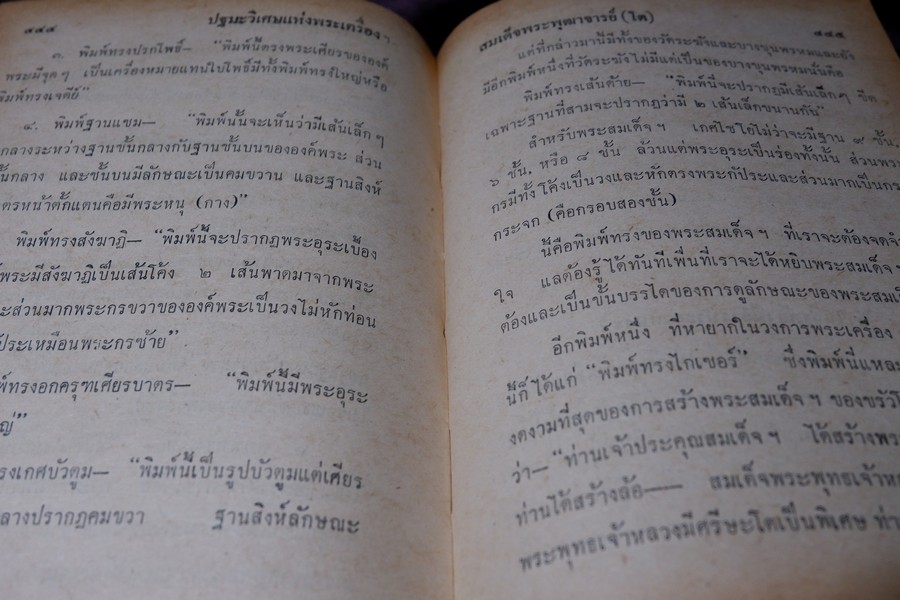 ๔๔๔ ปฐมะวิเศษแห่งพระเครื่อง ฯ
๓. พิมพ์ทรงปรกโพธิ์— “พิมพ์นี้ตรงพระเศียรขององค์
พระมีจุดๆ เป็นเครื่องหมายแทนใบโพธิ์มีทั้งพิมพ์ทรงใหญ่หรือ
พิมพ์ทรงเจดีย์”
๔. พิมพ์ฐานแซม— “พิมพ์นั้นจะเห็นว่ามีเส้นเล็กๆ
กลางระหว่างฐานชั้นกลางกับฐานชั้นบนขององค์พระ ส่วน
ั้นกลาง และชั้นบนมีลักษณะเป็นคมขวาน และฐานสิงห์
ตรหน้าตั๊กแตนคือมีพระหนุ (กาง)”
พิมพ์ทรงสังฆาฏิ— “พิมพ์นี้จะปรากฏพระอุระเบื้อง
พระมีสังฆาฏิเป็นเส้นโค้ง ๒ เส้นพาดมาจากพระ
ะส่วนมากพระกรขวาขององค์พระเป็นวงไม่หักท่อน
ประเหมือนพระกรซ้าย”
พ์ทรงอกครุฑเศียรบาตร— “พิมพ์นี้มีพระอุระ
ญ่”
รงเกศบัวตูม— “พิมพ์นี้เป็นรูปบัวตูมแต่เศียร
ลางปรากฏคมขวา ฐานสิงห์ลักษณะ
สมเด็จพระพุฒาจารย์ (โต) ๔๔๕
แต่ที่กล่าวมานี้มีทั้งของวัดระฆังและบางขุนพรหมและยัง
มีอีกพิมพ์หนึ่งที่วัดระฆังไม่มีแต่เป็นของบางขุนพรหมนั้นคือ
พิมพ์ทรงเส้นด้าย— “พิมพ์นี้จะปรากฏมีเส้นเล็กๆ ชิด
เฉพาะฐานที่สามจะปรากฏว่ามี ๒ เส้นเล็กขนานกัน”
สำหรับพระสมเด็จ ฯ เกศไชโยไม่ว่าจะมีฐาน ๙ ชั้น,
๖ ชั้น, หรือ ๘ ชั้น ล้วนแต่พระอุระเป็นร่องทั้งนั้น ส่วนพระ
กรมีทั้ง โค้งเป็นวงและหักตรงพระกัประและส่วนมากเป็นกร
กระจก (คือกรอบสองชั้น)
นี้คือพิมพ์ทรงของพระสมเด็จ ฯ ที่เราจะต้องจดจำ
ใจ แลต้องรู้ ได้ทันทีเพื่นที่เราจะได้หยิบพระสมเด็จ ฯ
ต้องและเป็นขั้นบรรไดของการดูลักษณะของพระสมเด็
อีกพิมพ์หนึ่ง ที่หายากในวงการพระเครื่อง
นี้ก็ ได้แก่ “พิมพ์ทรงไกเซอร์” ซึ่งพิมพ์นี้แหละ
งดงามที่สุดของการสร้างพระสมเด็จ ฯ ของขรัวโ
ว่า— “ท่านเจ้าประคุณสมเด็จ ฯ ได้สร้างพระ
ท่านได้สร้างล้อ— สมเด็จพระพุทธเจ้าห
พระพุทธเจ้าหลวงมีศรีษะโตเป็นพิเศษ ท่า